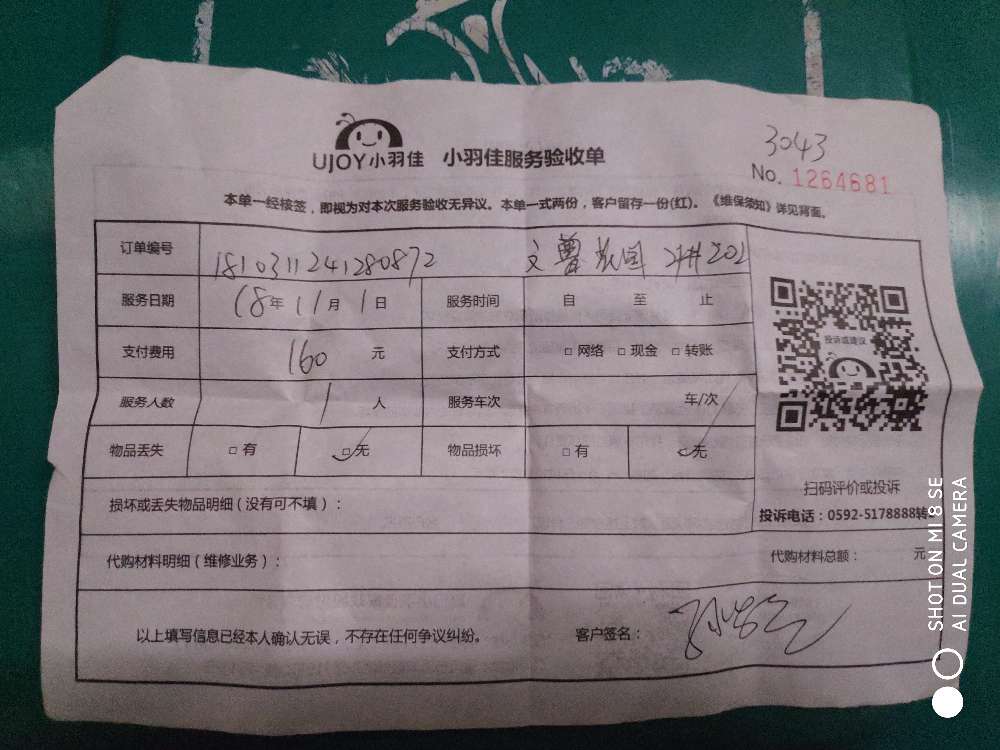 3043
UJOY小羽佳 小羽佳服务验收单
No. 1264681
本单一经核签，即视为对本次服务验收无异议。本单一式两份，客户留存一份(红)。《维保须知》详见背面。
订单编号 1810311241280872
服务日期 18年11月1日 服务时间 自 至 止
支付费用 160 元 支付方式 □网络 □现金 □转账
投诉或建议
服务人数 1 人 服务车次 车/次
物品丢失 □有 □无 物品损坏 □有 □无
扫码评价或投诉
损坏或丢失物品明细（没有可不填）：
投诉电话：0592-5178888转
代购材料明细（维修业务）： 代购材料总额： 元
以上填写信息已经本人确认无误，不存在任何争议纠纷。 客户签名：
SHOT ON MI 8 SE
AI DUAL CAMERA